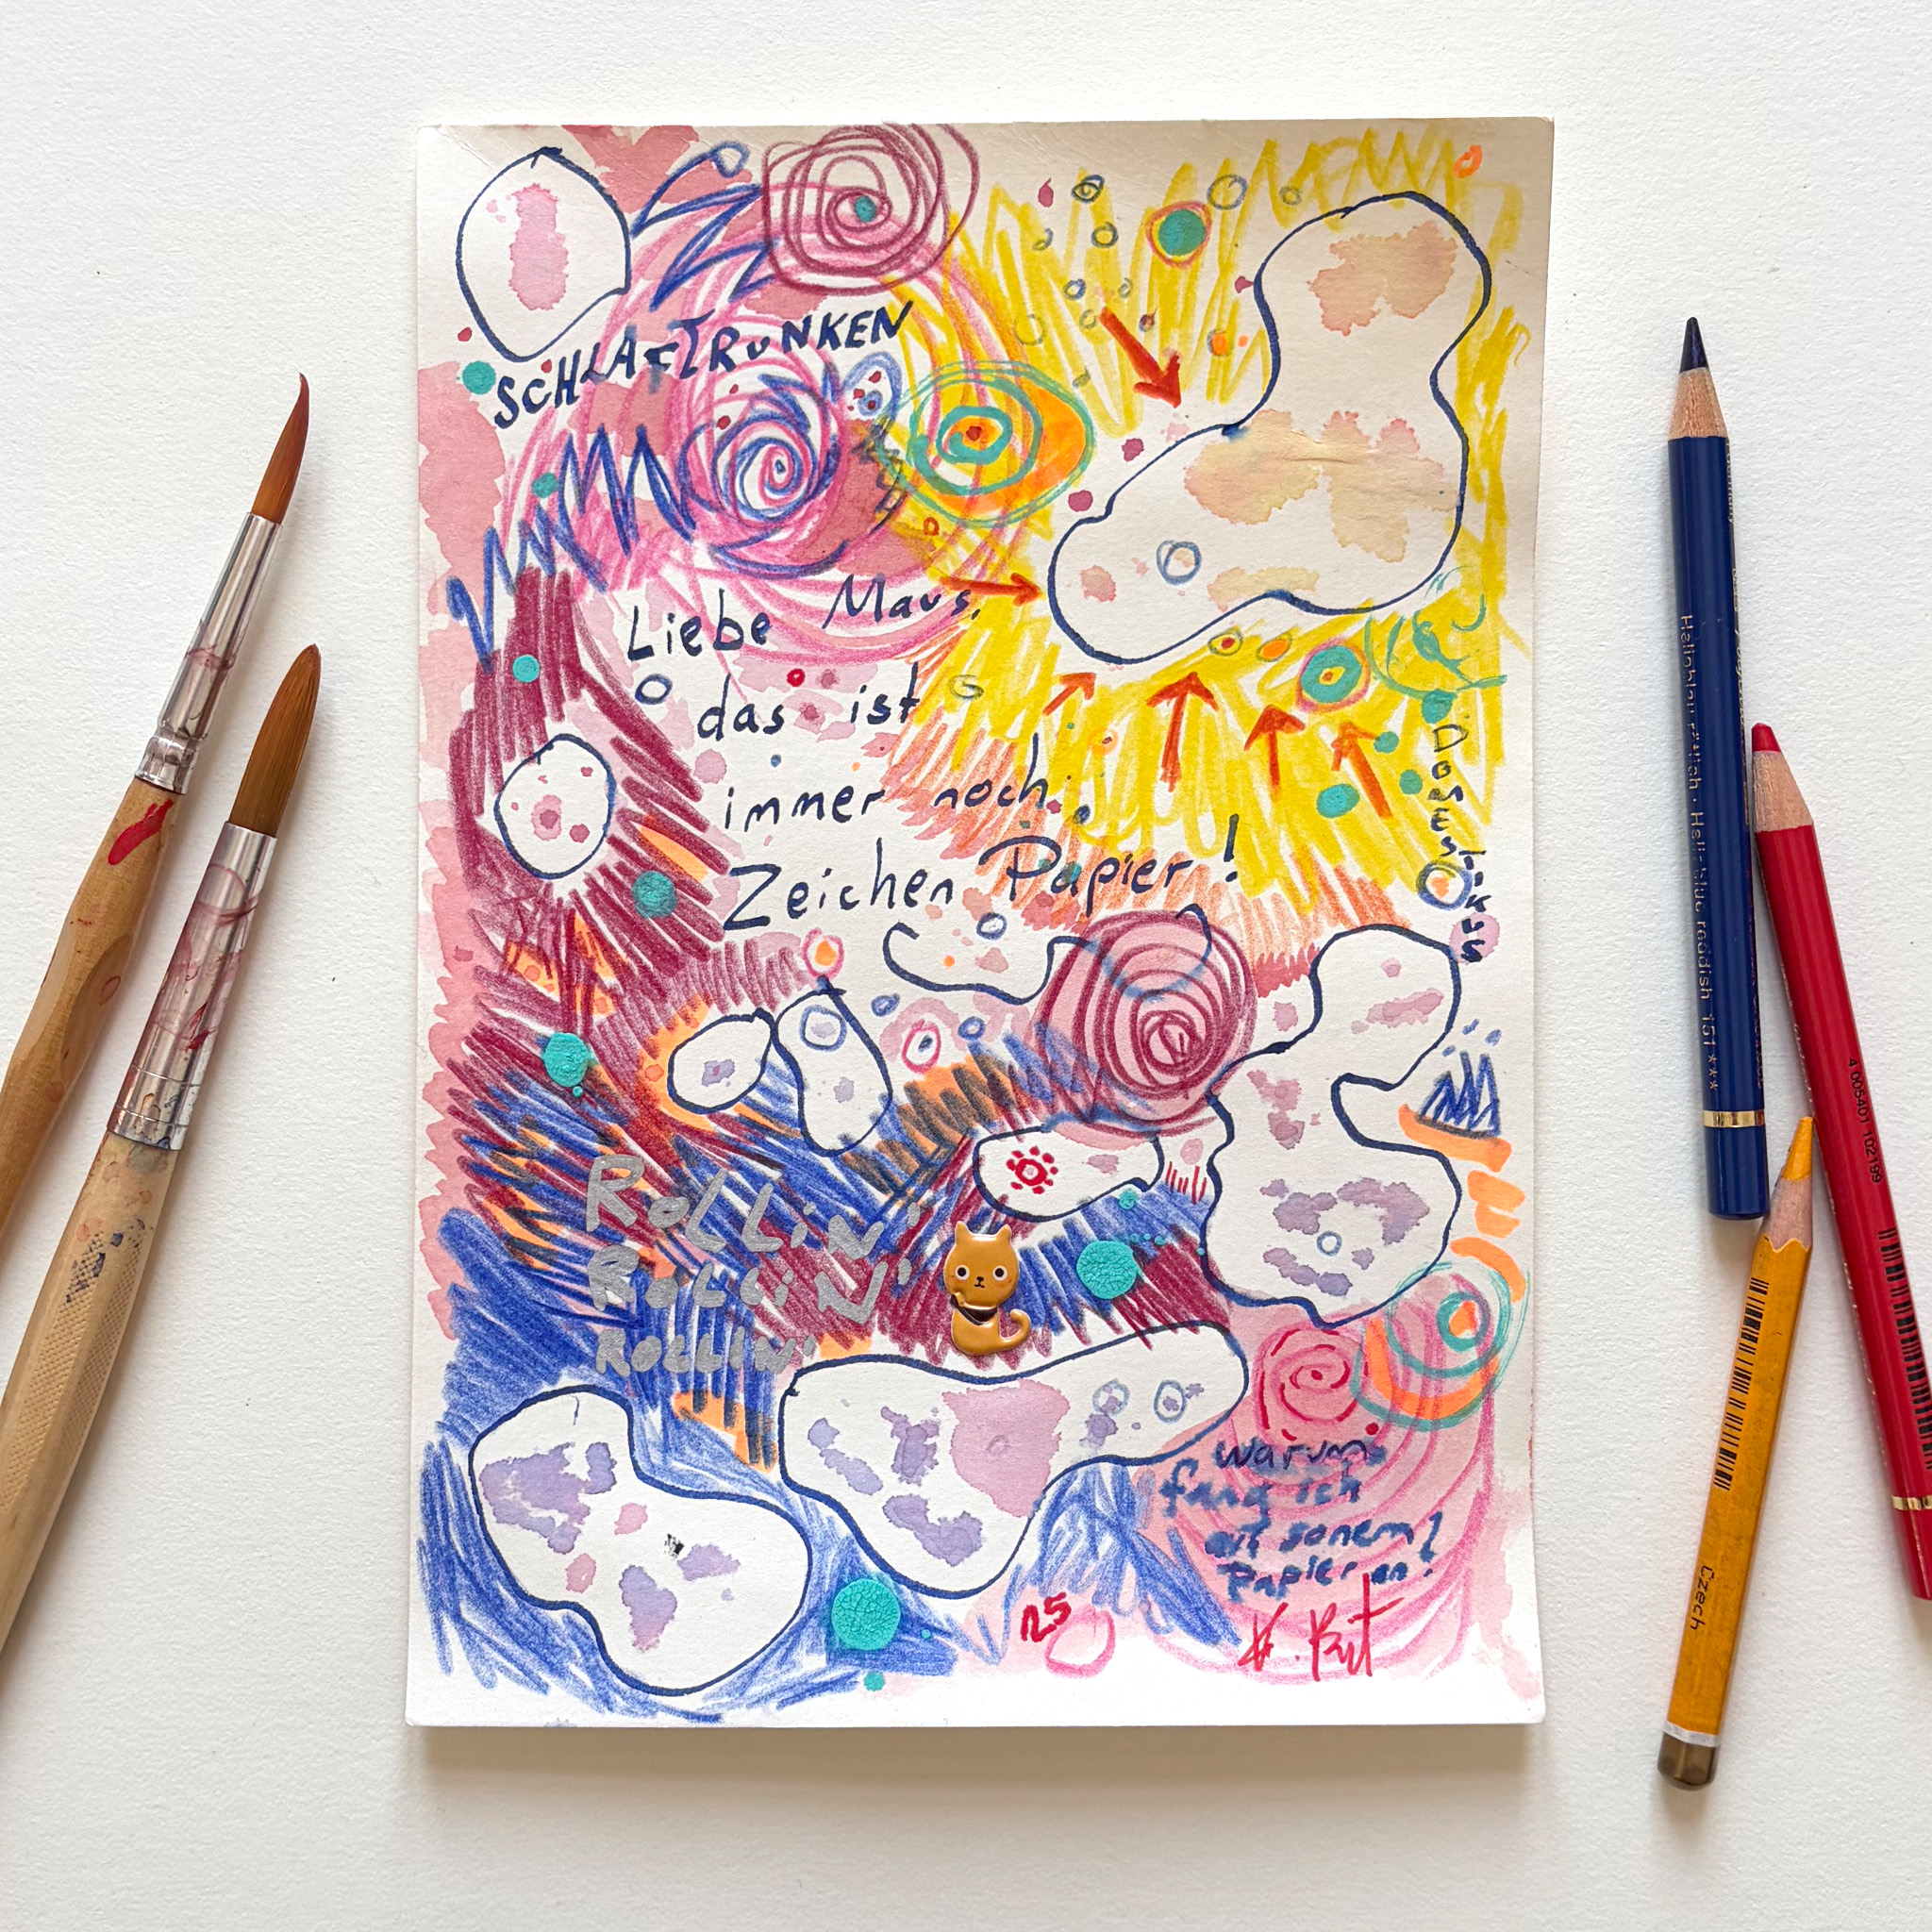 SCHLAFTRUNKEN
Liebe Maus,
das ist
immer noch
Zeichen Papier!
DOMESTIKUS
ROLLIN'
ROLLIN'
ROLLIN'
warum
fang ich
auf sonem
Papier an?
25
Hellblau rötlich · Hellblue reddish 151 ****
4 005401 102199
Czech